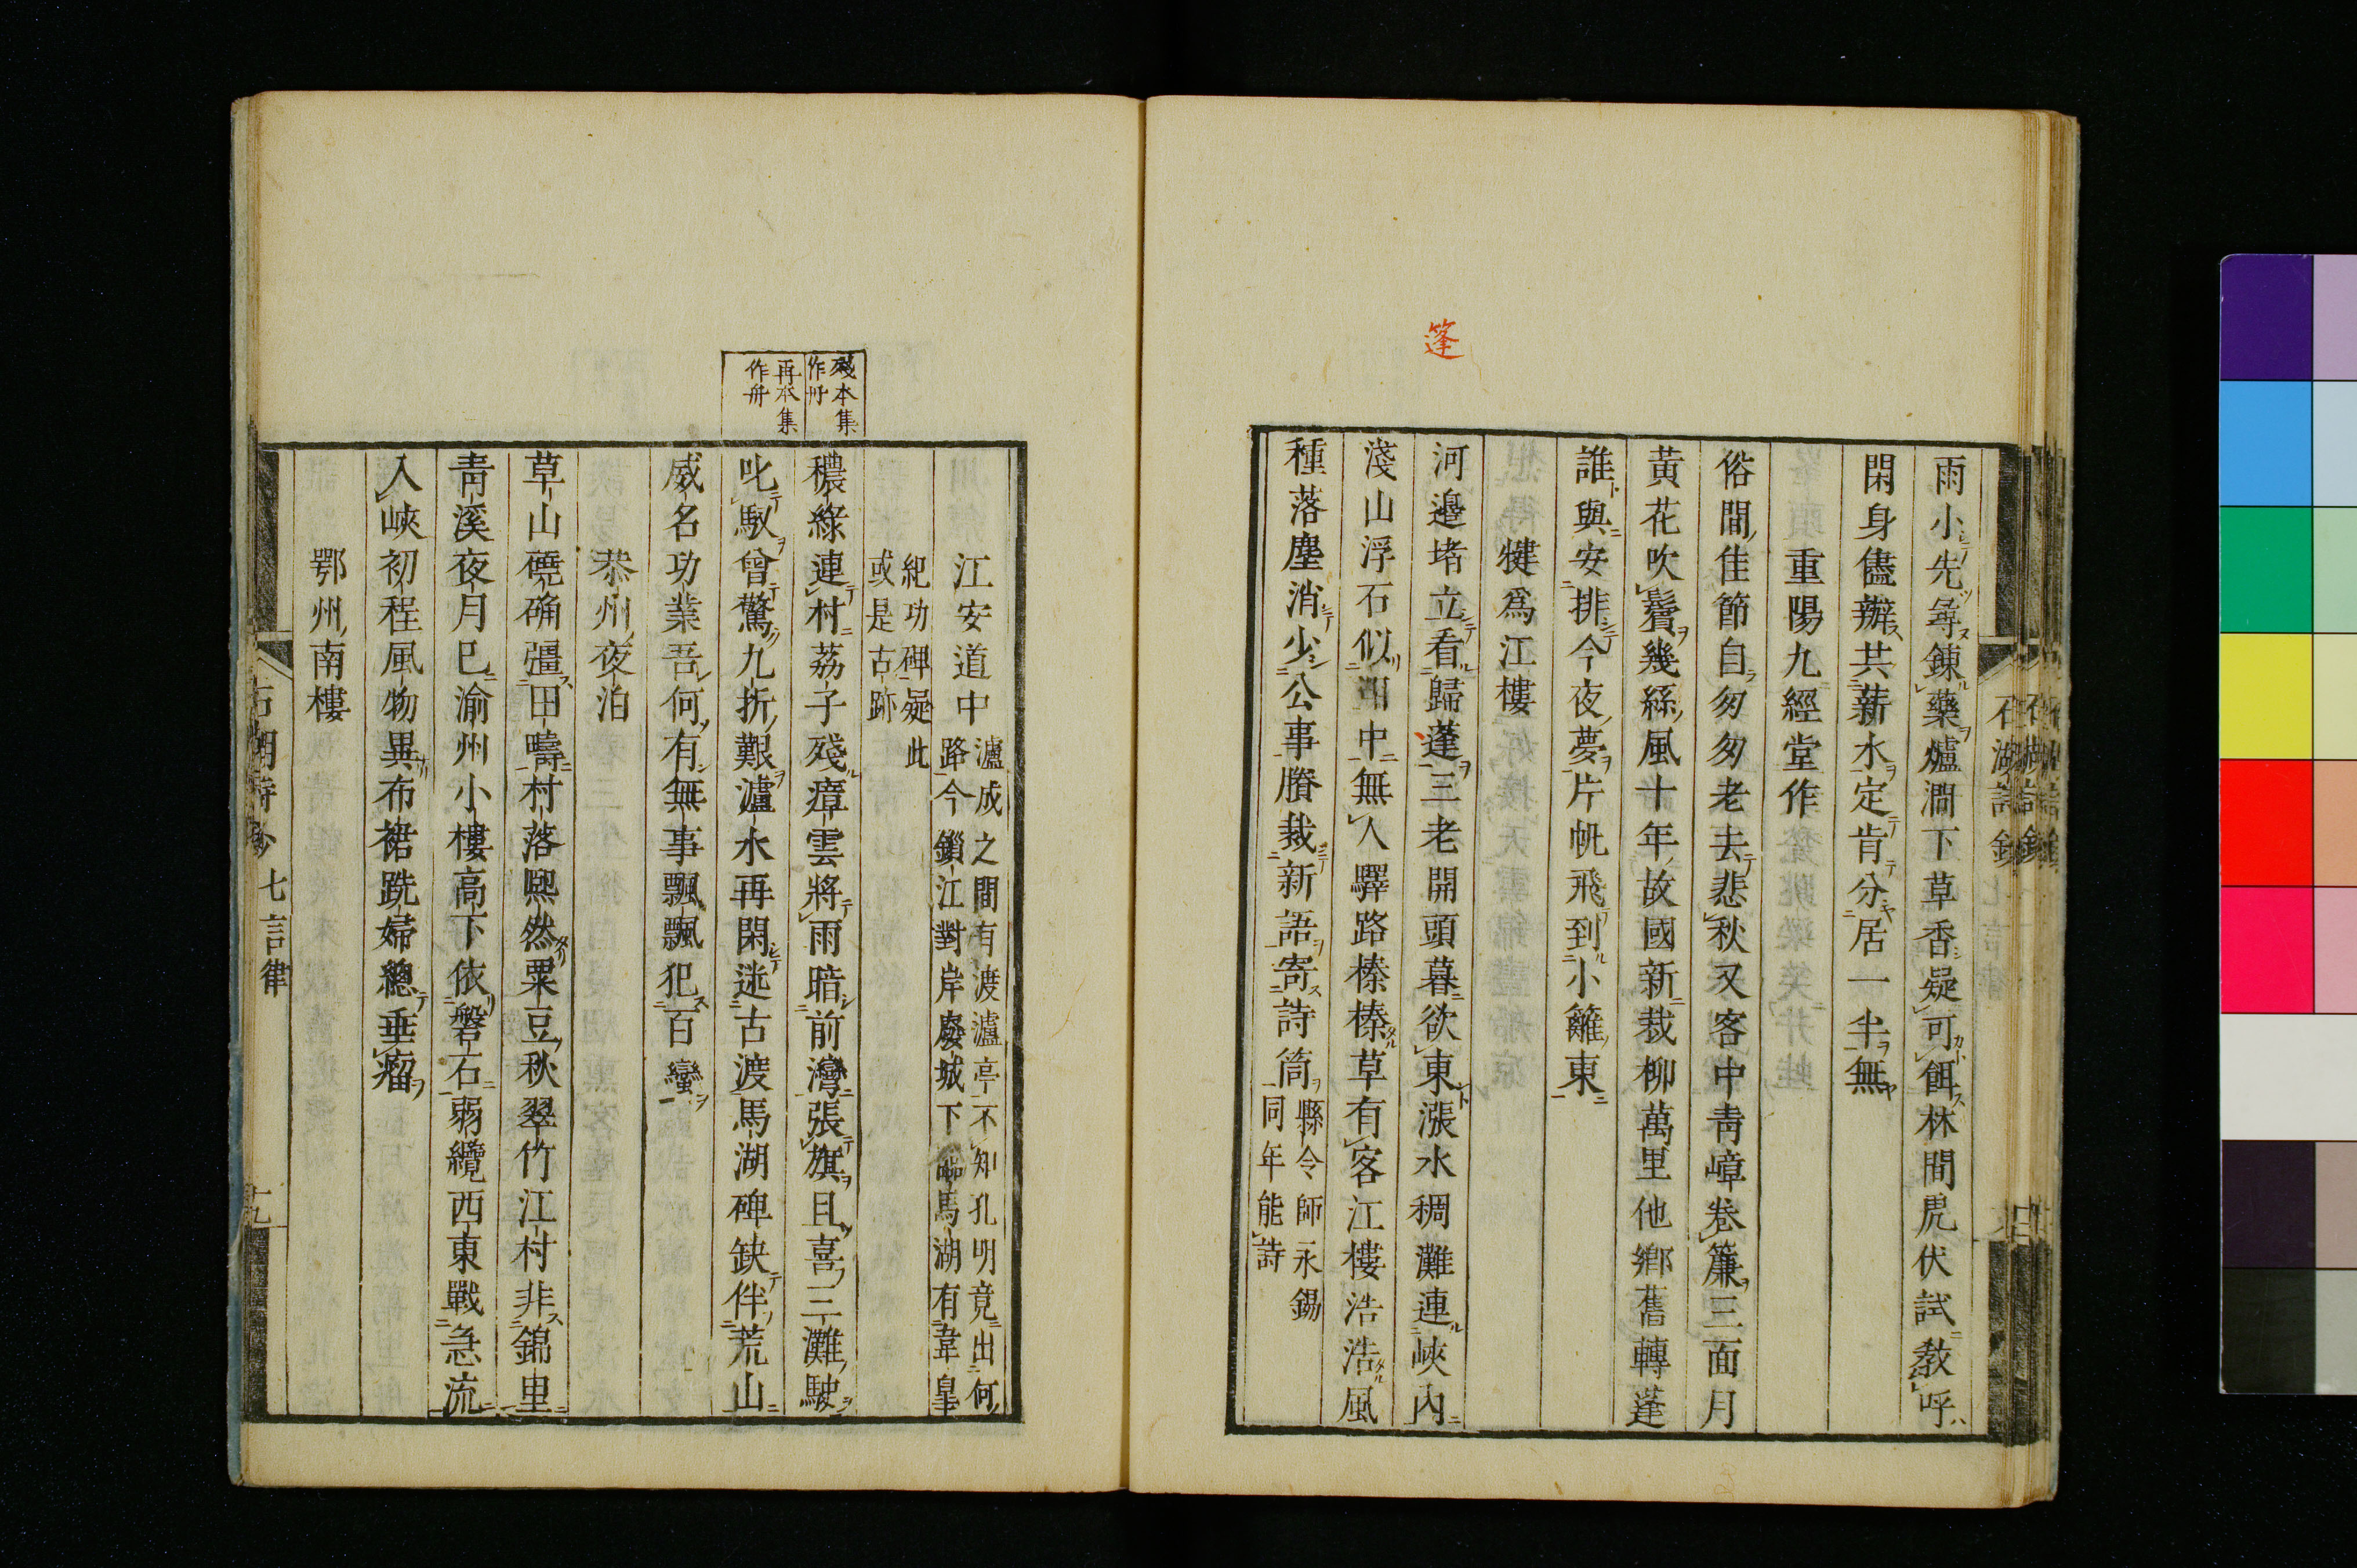 篷
雨小先尋鍊藥爐澗下草香疑可餌林間虎伏試教呼
閑身儘辦共薪水定肯分居一半無
重陽九經堂作
俗間佳節自匆匆老去悲秋又客中青嶂卷簾三面月
黃花吹鬢幾絲風十年故國新栽柳萬里他鄉舊轉蓬
誰與安排今夜夢片帆飛到小籬東
犍爲江樓
河邉堵立看歸蓬三老開頭暮欲東漲水稠灘連峽內
淺山浮石似湖中無人驛路榛榛草有客江樓浩浩風
種落塵消少公事賸裁新語寄詩筒
縣令師永錫
同年能詩
殘本集
作冊
再本集
作舟
江安道中
瀘戍之間有渡瀘亭不知孔明竟出何
路今鎖江對岸廢城下臨馬湖有韋皐
紀功碑疑此
或是古跡
穠綠連村荔子殘瘴雲將雨暗前灣張旗且喜三灘駛
叱馭曾驚九折艱瀘水再閑迷古渡馬湖碑缺伴荒山
威名功業吾何有無事飄飄犯百蠻
恭州夜泊
草山磽确彊田疇村落熙然粟豆秋翠竹江村非錦里
青溪夜月已渝州小樓高下依磐石弱纜西東戰急流
入峽初程風物異布裙跣婦總垂瘤
鄂州南樓
石湖詩鈔
七言律